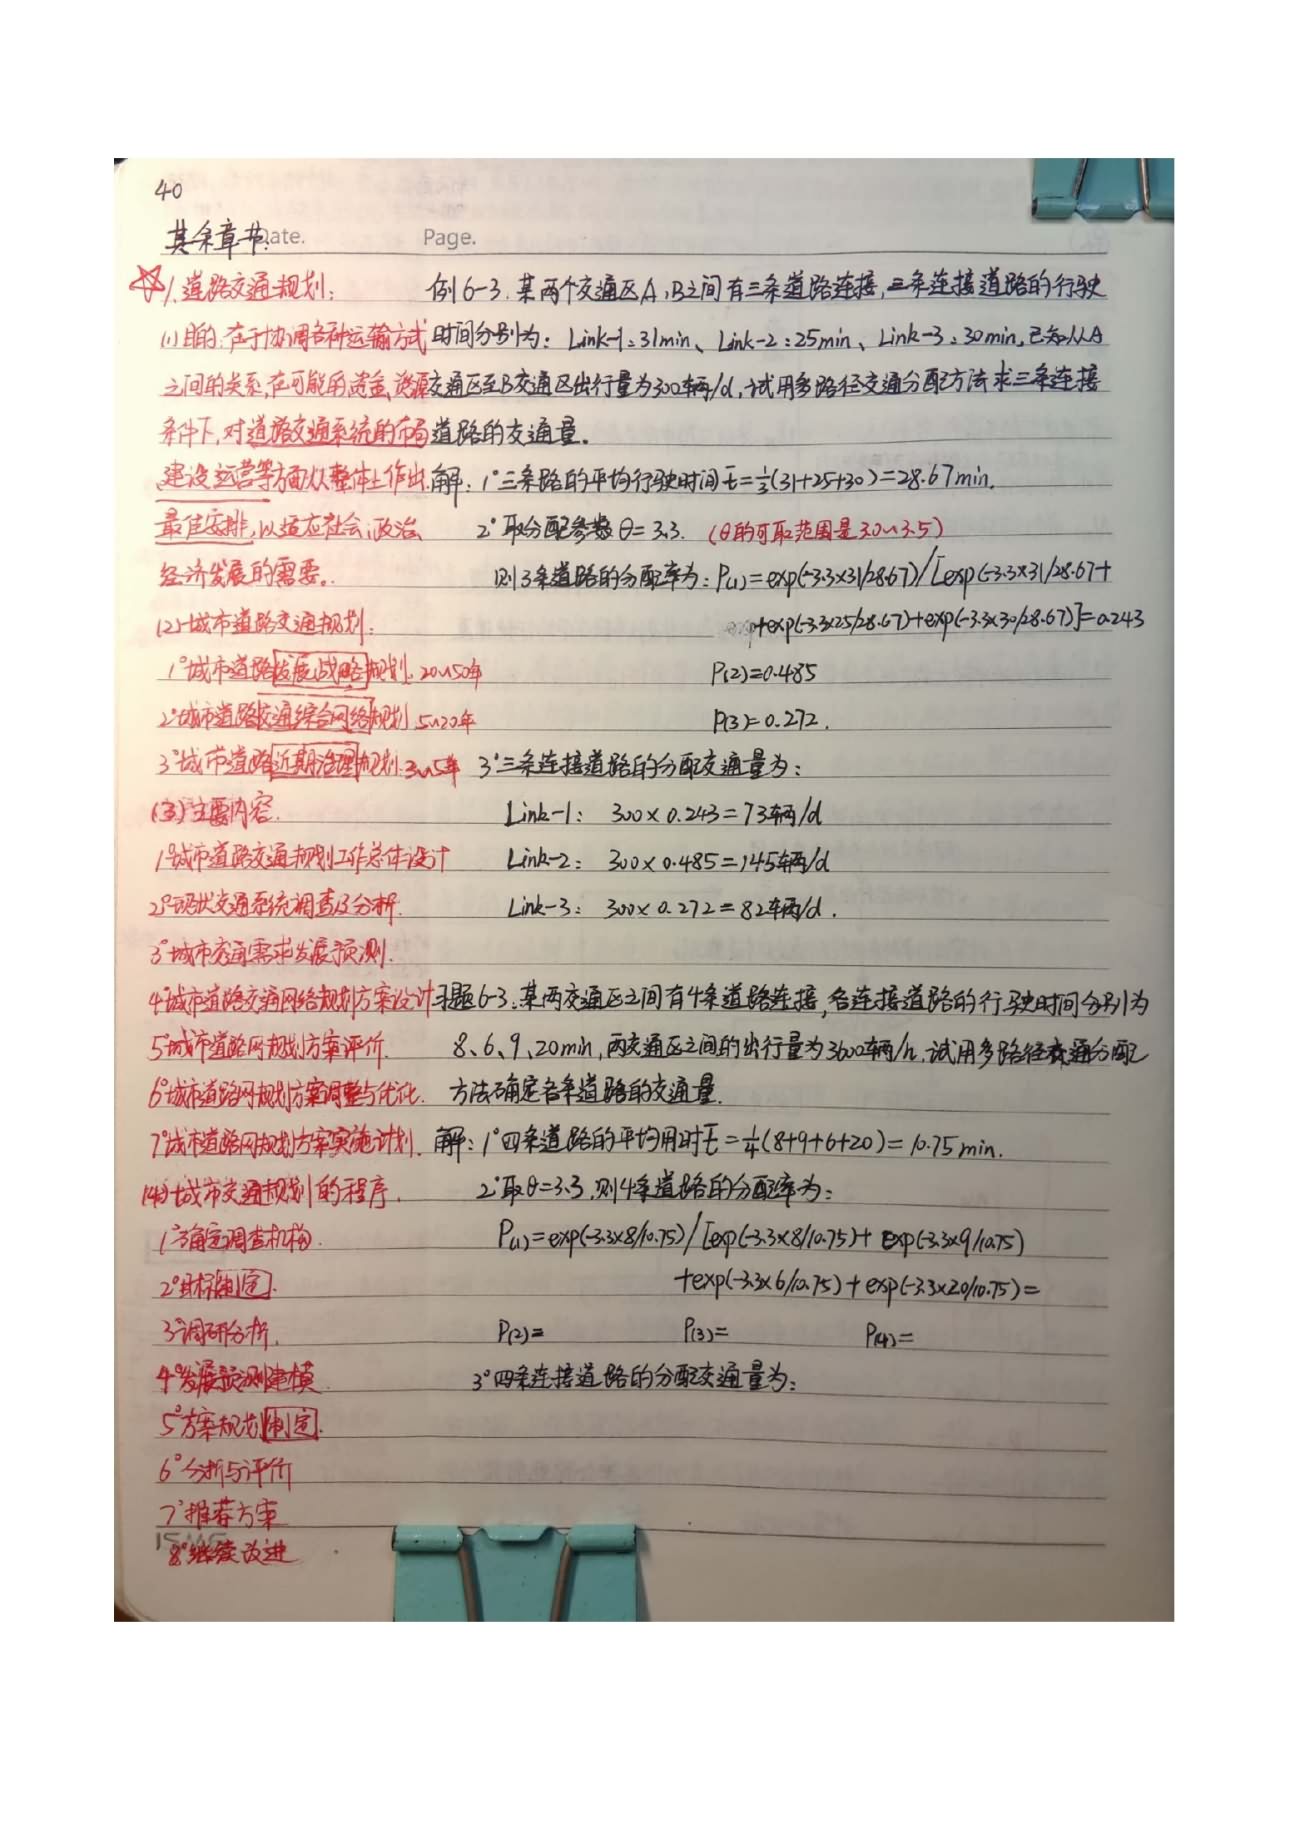 40
其余章节:
Date. Page.
1、道路交通规划:
(1)目的:在于协调各种运输方式
之间的关系,在可能的资金、资源
条件下,对道路交通系统的布局
建设运营等方面从整体上作出
最佳安排,以适应社会、政治、
经济发展的需要。
(2)城市道路交通规划:
1°城市道路发展战略规划.20~50年
2°城市道路交通综合网络规划 5~20年
3°城市道路近期治理规划.3~5年
(3)主要内容.
1°城市道路交通规划工作总体设计
2°现状交通系统调查及分析.
3°城市交通需求发展预测.
4°城市道路交通网络规划方案设计
5°城市道路网规划方案评价.
6°城市道路网规划方案调整与优化.
7°城市道路网规划方案实施计划.
(4)城市交通规划的程序.
1°确定调查机构.
2°目标制定.
3°调研分析.
4°发展预测建模
5°方案规划制定.
6°分析与评价
7°推荐方案
8°继续改进
例6-3.某两个交通区A,B之间有三条道路连接,三条连接道路的行驶
时间分别为:Link-1:31min、Link-2:25min、Link-3:30min.已知从A
交通区至B交通区出行量为300辆/d,试用多路径交通分配方法求三条连接
道路的交通量。
解:1°三条路的平均行驶时间t̄=1/3(31+25+30)=28.67min.
2°取分配参数θ=3.3.(θ的可取范围是3.0~3.5)
则3条道路的分配率为:P(1)=exp(-3.3×31/28.67)/[exp(-3.3×31/28.67+
+exp(-3.3×25/28.67)+exp(-3.3×30/28.67)]=0.243
P(2)=0.485
P(3)=0.272.
3°三条连接道路的分配交通量为:
Link-1: 300×0.243=73辆/d
Link-2: 300×0.485=145辆/d
Link-3: 300×0.272=82辆/d.
习题6-3.某两交通区之间有4条道路连接,各连接道路的行驶时间分别为
8、6、9、20min,两交通区之间的出行量为3600辆/h,试用多路径交通分配
方法确定各条道路的交通量.
解:1°四条道路的平均用时t̄=1/4(8+9+6+20)=10.75min.
2°取θ=3.3,则4条道路的分配率为:
P(1)=exp(-3.3×8/10.75)/[exp(-3.3×8/10.75)+exp(-3.3×9/10.75)
+exp(-3.3×6/10.75)+exp(-3.3×20/10.75)=
P(2)= P(3)= P(4)=
3°四条连接道路的分配交通量为: